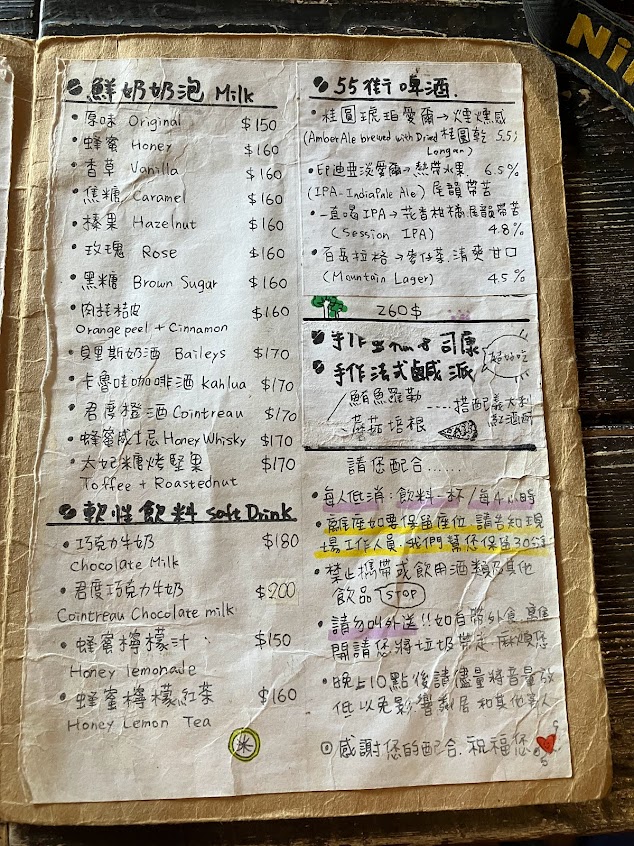 鮮奶奶泡 Milk
原味 Original $150
蜂蜜 Honey $160
香草 Vanilla $160
焦糖 Caramel $160
榛果 Hazelnut $160
玫瑰 Rose $160
黑糖 Brown Sugar $160
肉桂桔皮 $160
Orange peel + Cinnamon
貝里斯奶酒 Baileys $170
卡魯哇咖啡酒 Kahlua $170
君度橙酒 Cointreau $170
蜂蜜威士忌 Honey Whisky $170
太妃糖烤堅果 $170
Toffee + Roasted nut
軟性飲料 Soft Drink
巧克力牛奶 $180
Chocolate Milk
君度巧克力牛奶 $200
Cointreau Chocolate milk
蜂蜜檸檬汁 $150
Honey lemonade
蜂蜜檸檬紅茶 $160
Honey Lemon Tea
55街啤酒
桂圓琥珀愛爾→煙燻感
(Amber Ale brewed with Dried 桂圓乾 5.5)
Longan)
印迪亞淡愛爾→熱帶水果 6.5%
(IPA-India Pale Ale) 尾韻帶苦
一直喝IPA→花香柑橘尾韻帶苦
(Session IPA) 4.8%
百岳拉格→麥仔茶.清爽甘口
(Mountain Lager) 4.5%
260$
手作 司康 好好吃
手作法式鹹派
鮪魚羅勒
蘑菇培根 搭配義大利
紅酒醋
請您配合......
每人低消:飲料一杯/每4小時
離座如要保留座位.請告知現
場工作人員.我們幫您保留30分
禁止攜帶或飲用酒類及其他
飲品 STOP
請勿叫外送!!如自帶外食.離
開請您將垃圾帶走.麻煩您
晚上10點後請儘量將音量放
低以免影響鄰居和其他客人
感謝您的配合.祝福您
Ni